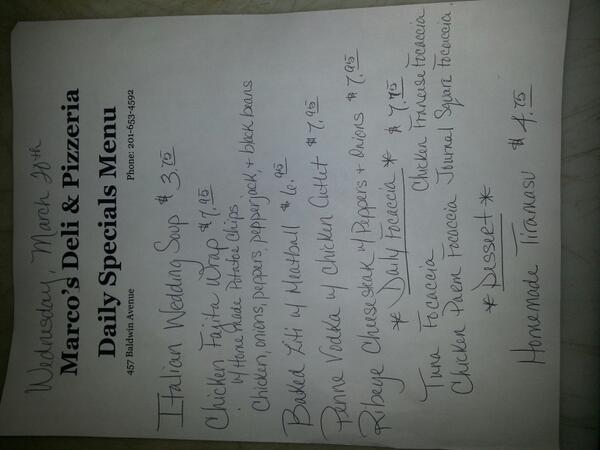 Wednesday, March 20th
Marco's Deli & Pizzeria
Daily Specials Menu
457 Baldwin Avenue Phone: 201-653-4592
Italian Wedding Soup $3.75
Chicken Fajita Wrap $7.95
w/ Home Made Potatoe Chips
Chicken, onions, peppers, pepperjack, + black beans
Baked Ziti w/ Meatball $6.95
Penne Vodka w/ Chicken Cutlet $7.95
Ribeye Cheesesteak w/ Peppers + Onions $7.95
* Daily Focaccia * $7.95
Tuna Focaccia Chicken Francese Focaccia
Chicken Parm Focaccia Journal Square Focaccia.
* Dessert *
Homemade Tiramasu $4.75